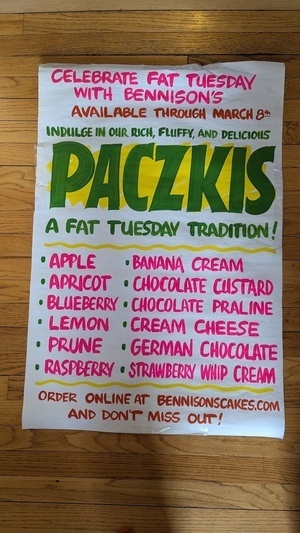 CELEBRATE FAT TUESDAY
WITH BENNISON'S
AVAILABLE THROUGH MARCH 8th
INDULGE IN OUR RICH, FLUFFY, AND DELICIOUS
PACZKIS
A FAT TUESDAY TRADITION!
• APPLE
• APRICOT
• BLUEBERRY
• LEMON
• PRUNE
• RASPBERRY
• BANANA CREAM
• CHOCOLATE CUSTARD
• CHOCOLATE PRALINE
• CREAM CHEESE
• GERMAN CHOCOLATE
• STRAWBERRY WHIP CREAM
ORDER ONLINE AT BENNISONSCAKES.COM
AND DON'T MISS OUT!